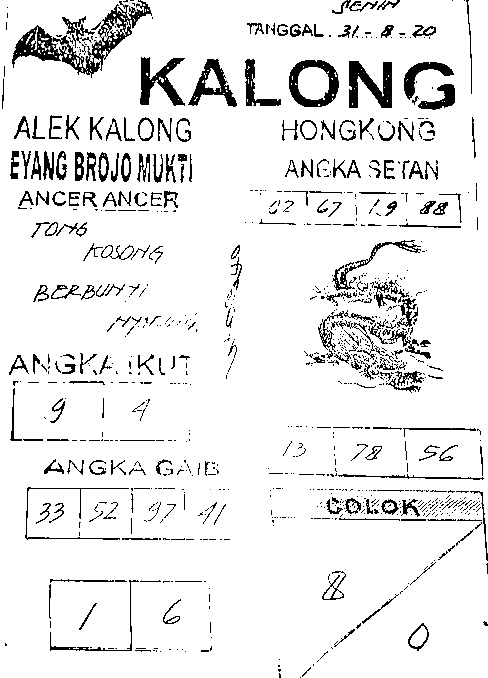 SENIN
TANGGAL. 31 - 8 - 20
KALONG
ALEK KALONG
EYANG BROJO MUKTI
ANCER ANCER
TONG
KOSONG
BERBUNYI
ANGKA IKUT
9 4
ANGKA GAIB
33 52 97 41
1 6
HONGKONG
ANGKA SETAN
02 67 19 88
13 78 56
COLOK
8
0